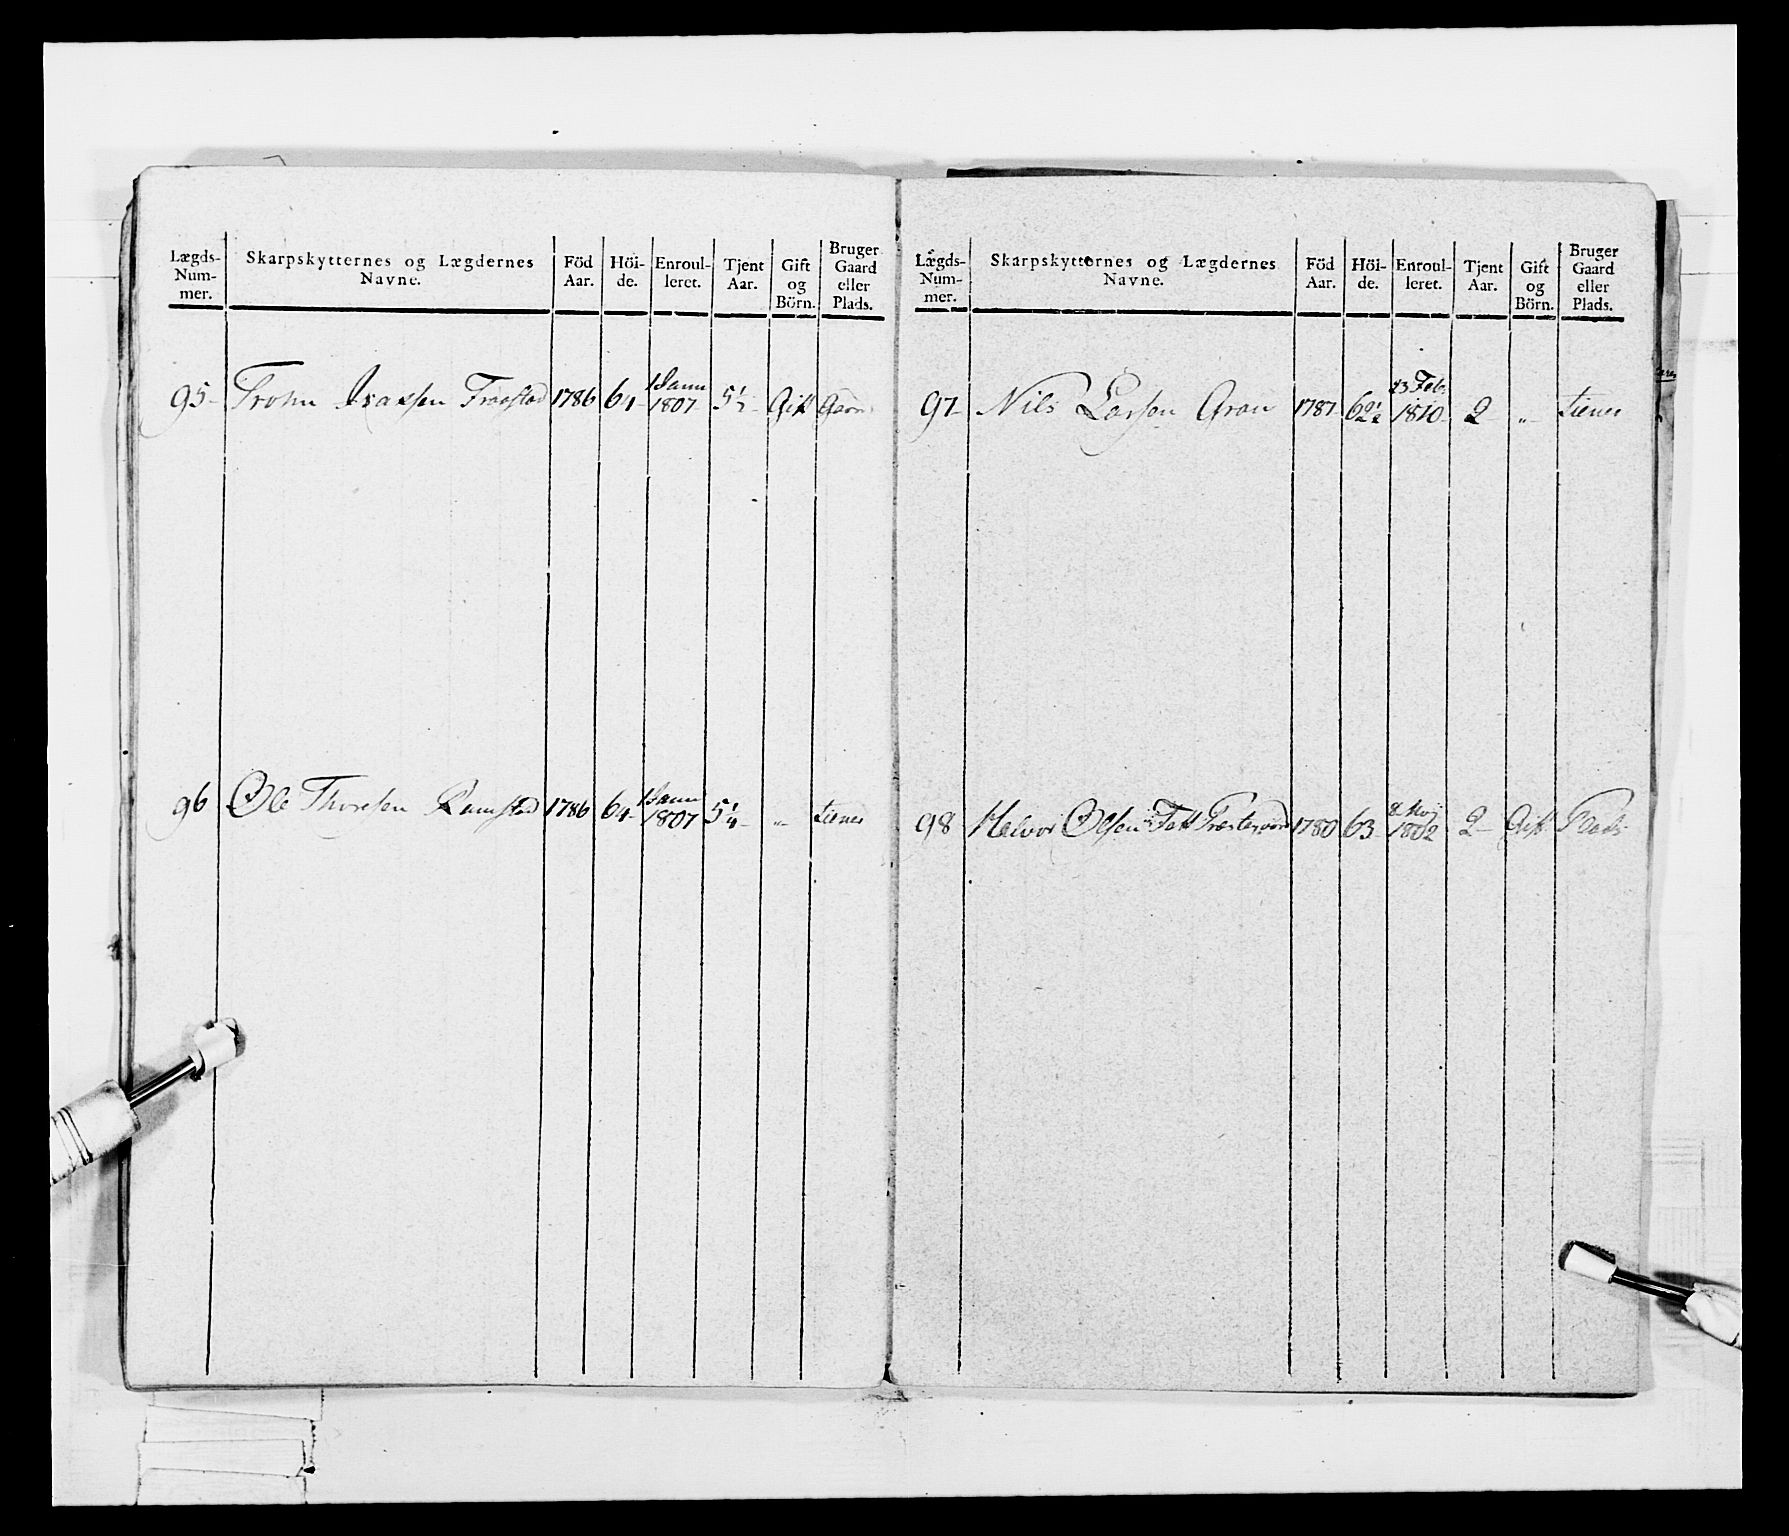 Lægds-Num-mer. Skarpskytternes og Lægdernes Navne. Föd Aar. Höi-de. Enroul-leret. Tjent Aar. Gift og Börn. Bruger Gaard eller Plads.
1 Janu
95 Trohn Fraastad 1786 61 1807 5 Gift
1 Janu
96 Ole Thoresen Ramstad 1786 64 1807 5 1/4 " tiener
Lægds-Num-mer. Skarpskytternes og Lægdernes Navne. Föd Aar. Höi-de. Enroul-leret. Tjent Aar. Gift og Börn. Bruger Gaard eller Plads.
23 Feb.
97 Nils Larsen Gran 1787 62 1/2 1810 2 " tiener
98 Helvor Olsen 1780 63 1802 2 Gift Plads